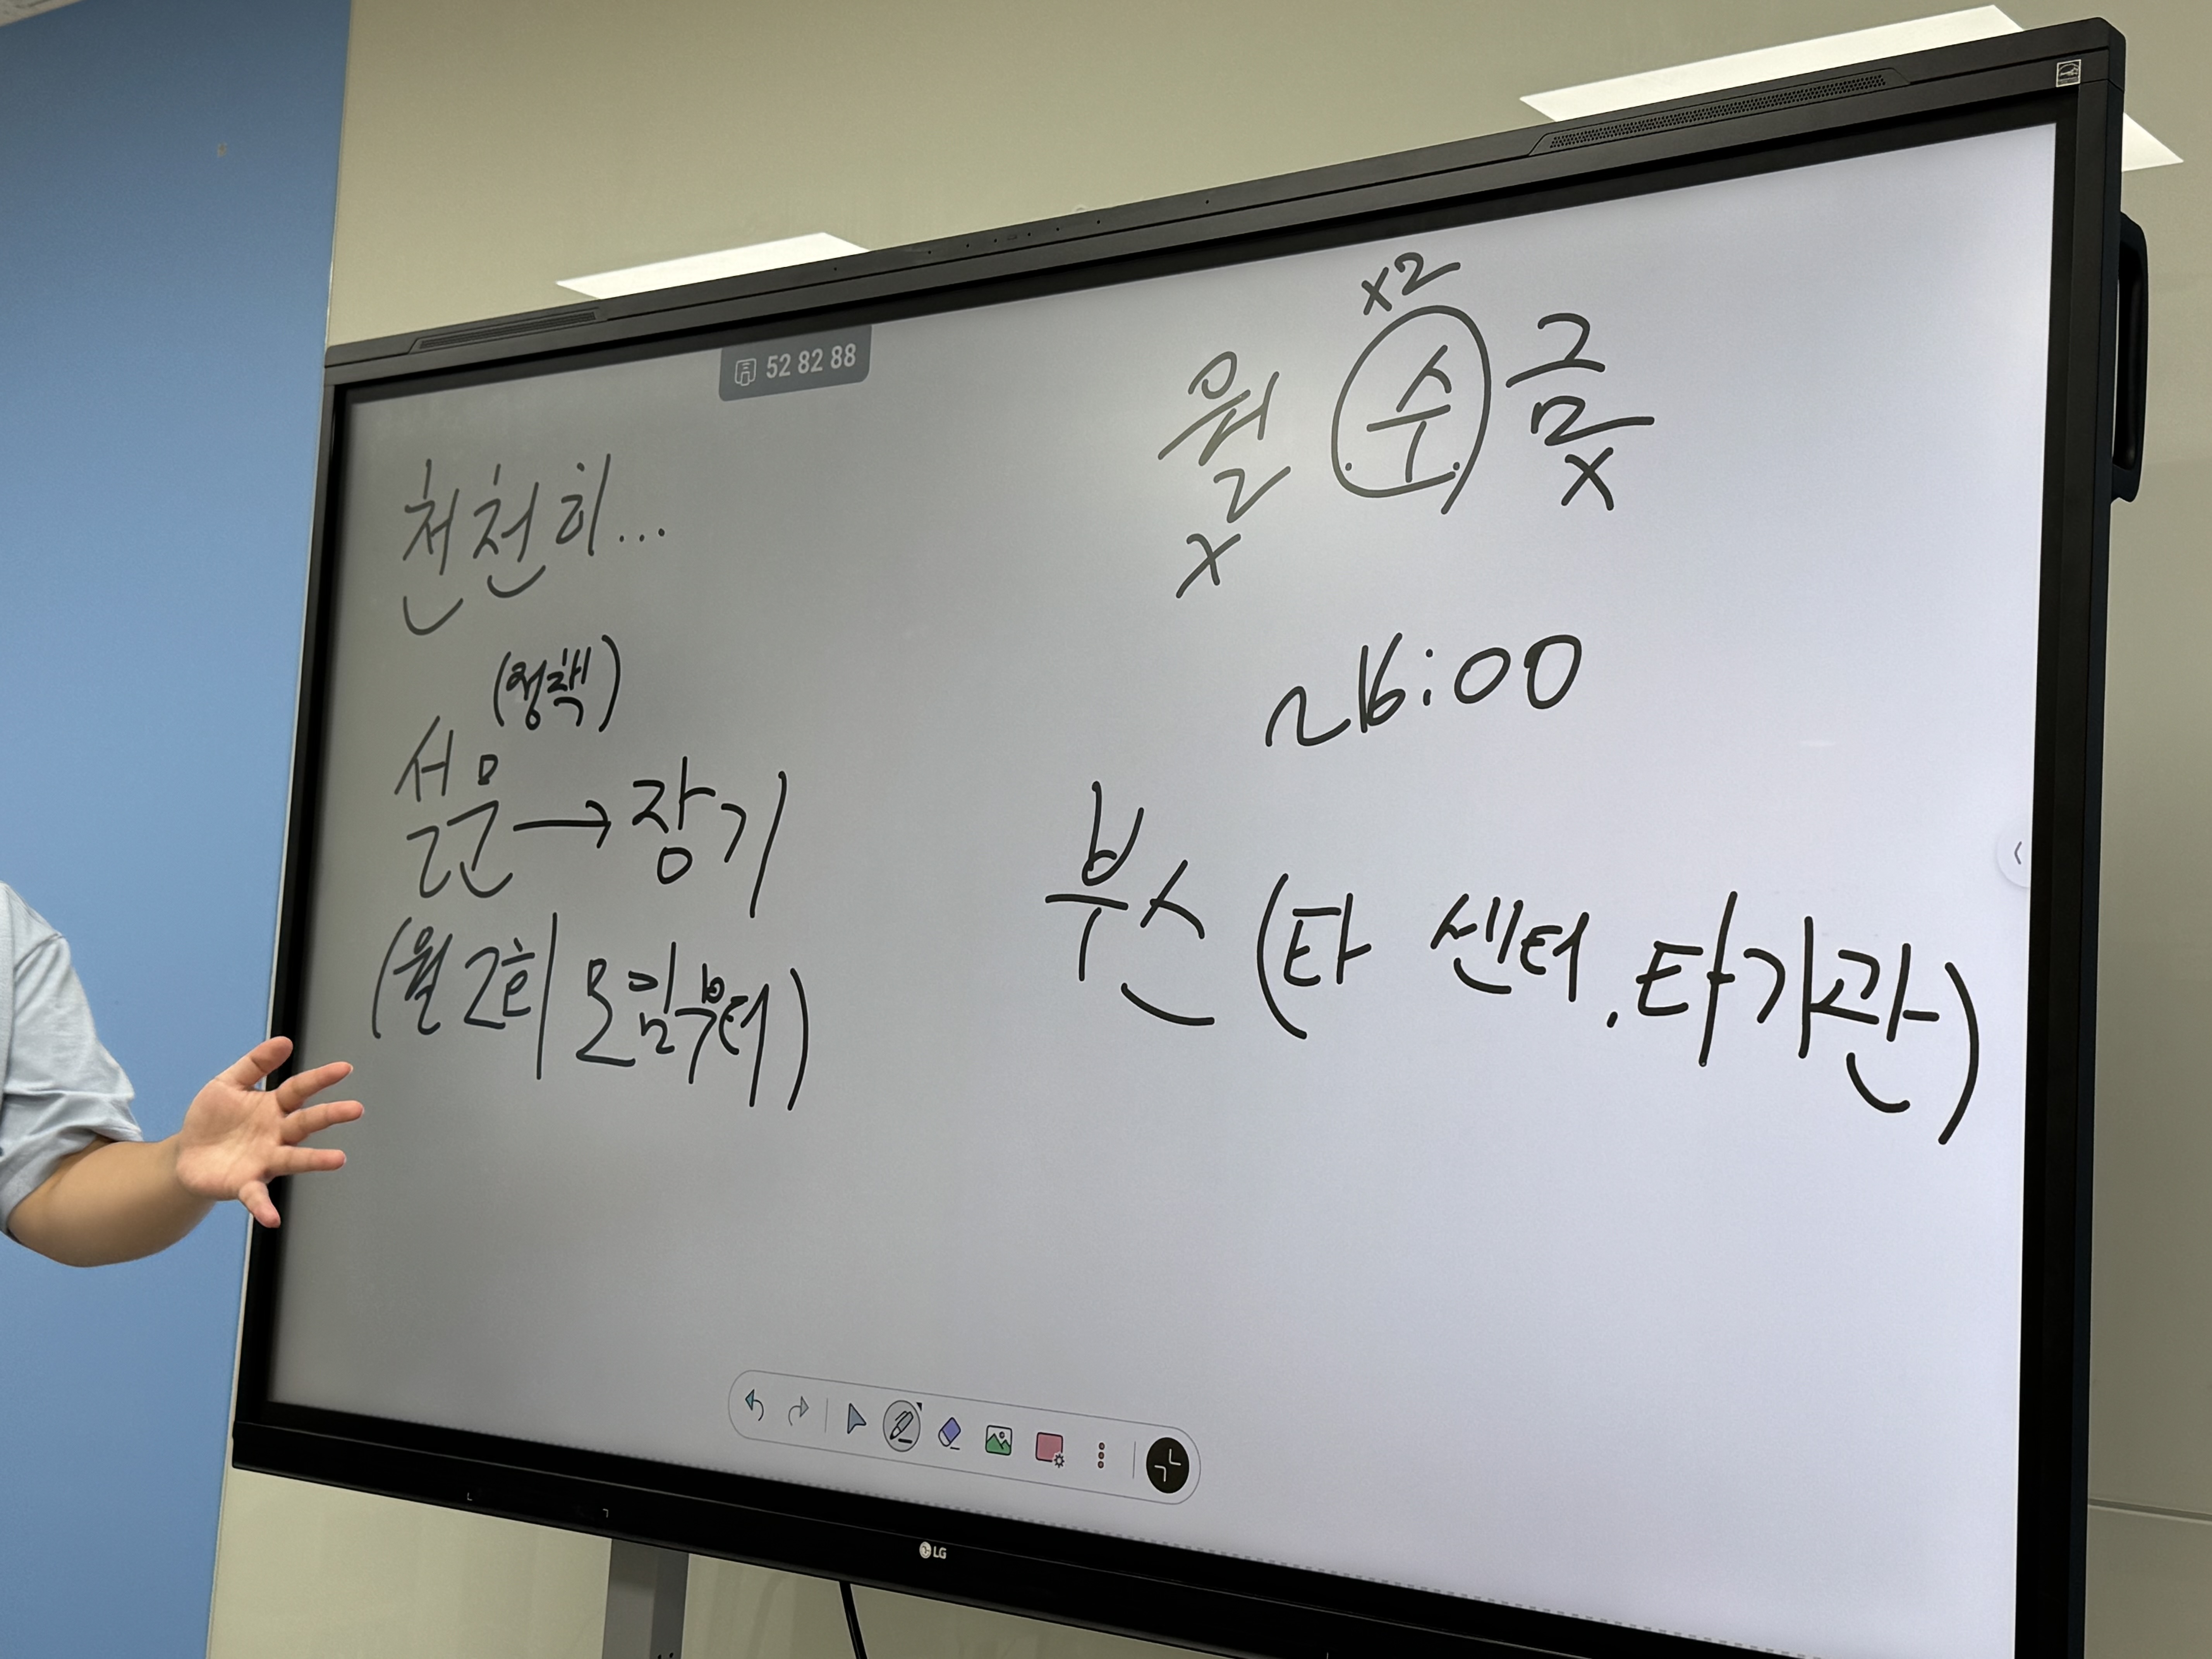 52 82 88
천천히...
(정책)
설문 → 장기
(월 2회 모임부터)
x2
월 수 금
x x
~16:00
부스 (타 센터, 타기관)
LG